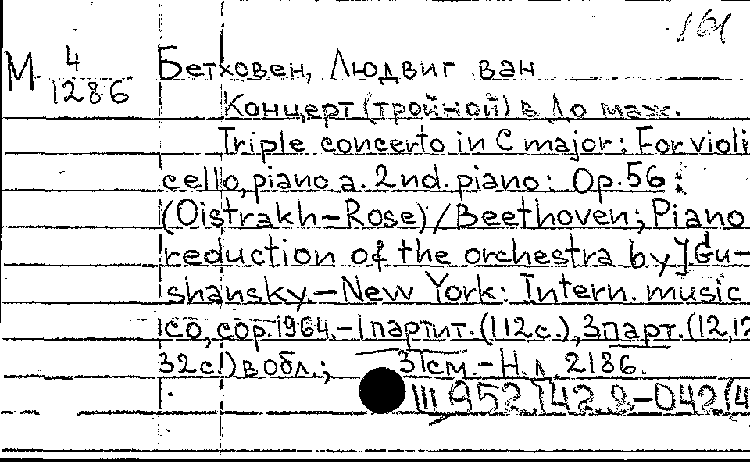 М 4/1286
Бетховен, Людвиг ван
Концерт (тройной) в До маж.
Triple concerto in C major: For violi
cello, piano a. 2nd. piano: Op.56:
(Oistrakh-Rose)/Beethoven; Piano
reduction of the orchestra by J. Gu-
shansky.-New York: Intern. music
co, cop. 1964.-1 партит. (112с.), 3 парт. (12,12
32с.) в обл.; 31см.-Н.д. 2186.